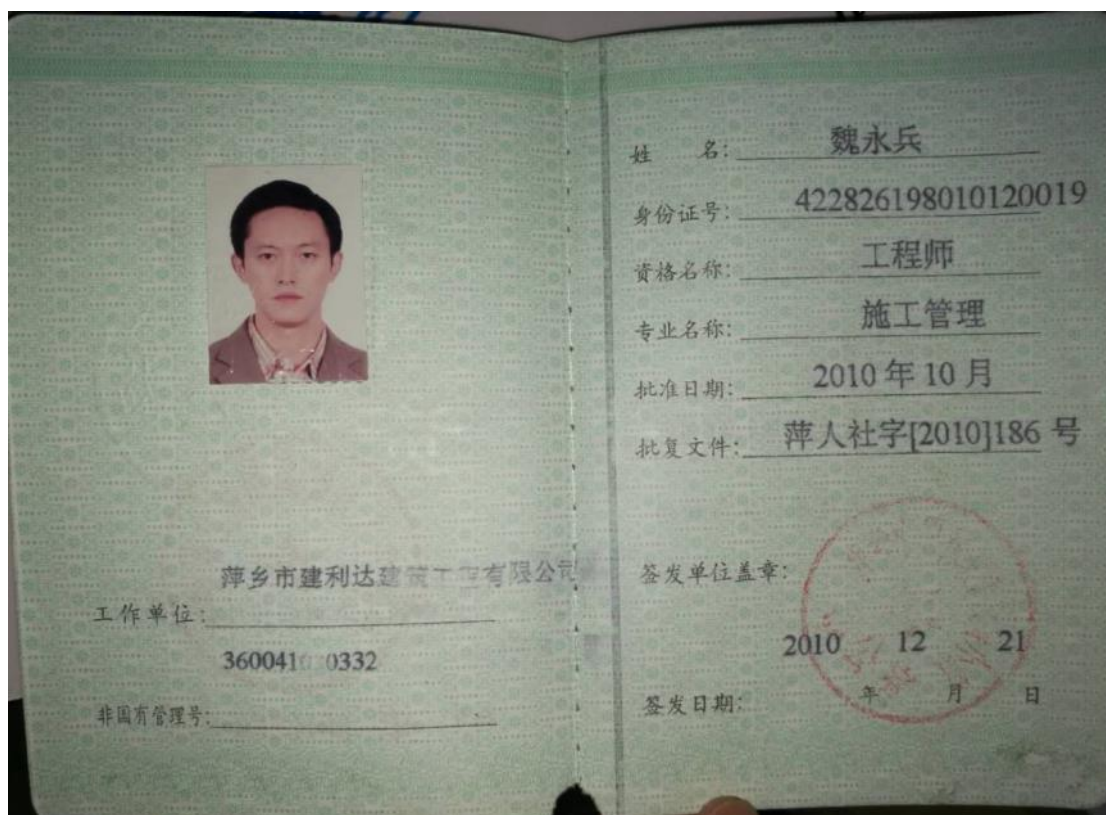 萍乡市建利达建筑工程有限公司
工作单位:
非国有管理号:
姓 名: 魏永兵
身份证号: 422826198010120019
资格名称: 工程师
专业名称: 施工管理
批准日期: 2010 年 10 月
批复文件: 萍人社字[2010]186 号
签发单位盖章:
2010 12 21
签发日期: 年 月 日